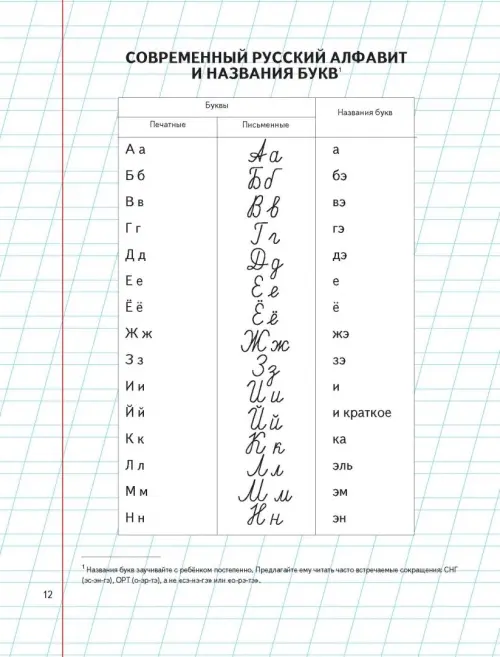 СОВРЕМЕННЫЙ РУССКИЙ АЛФАВИТ
И НАЗВАНИЯ БУКВ¹
Буквы
Названия букв
Печатные Письменные
А а А а а
Б б Б б бэ
В в В в вэ
Г г Г г гэ
Д д Д д дэ
Е е Е е е
Ё ё Ё ё ё
Ж ж Ж ж жэ
З з З з зэ
И и И и и
Й й Й й и краткое
К к К к ка
Л л Л л эль
М м М м эм
Н н Н н эн
¹ Названия букв заучивайте с ребёнком постепенно. Предлагайте ему читать часто встречаемые сокращения: СНГ
(эс-эн-гэ), ОРТ (о-эр-тэ), а не «сэ-нэ-гэ» или «о-рэ-тэ».
12